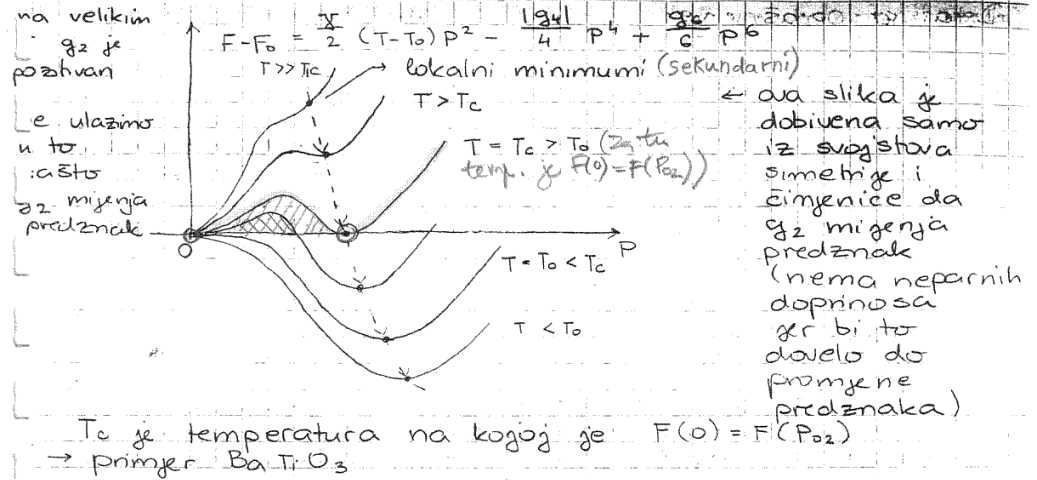 na velikim
g₂ je
pozitivan
e ulazimo
u to
zašto
g₂ mijenja
predznak
F-F₀ = γ/2 (T-T₀) P² - |g₄|/4 P⁴ + g₆/6 P⁶
T >> Tc
lokalni minimumi (sekundarni)
T > Tc
T = Tc > T₀ (za tu
temp. je F(0) = F(P₀₂))
0
P
T = T₀ < Tc
T < T₀
← ova slika je
dobivena samo
iz svojstava
simetrije i
činjenice da
g₂ mijenja
predznak
(nema neparnih
doprinosa
jer bi to
dovelo do
promjene
predznaka)
Tc je temperatura na kojoj je F(0) = F(P₀₂)
→ primjer BaTiO₃